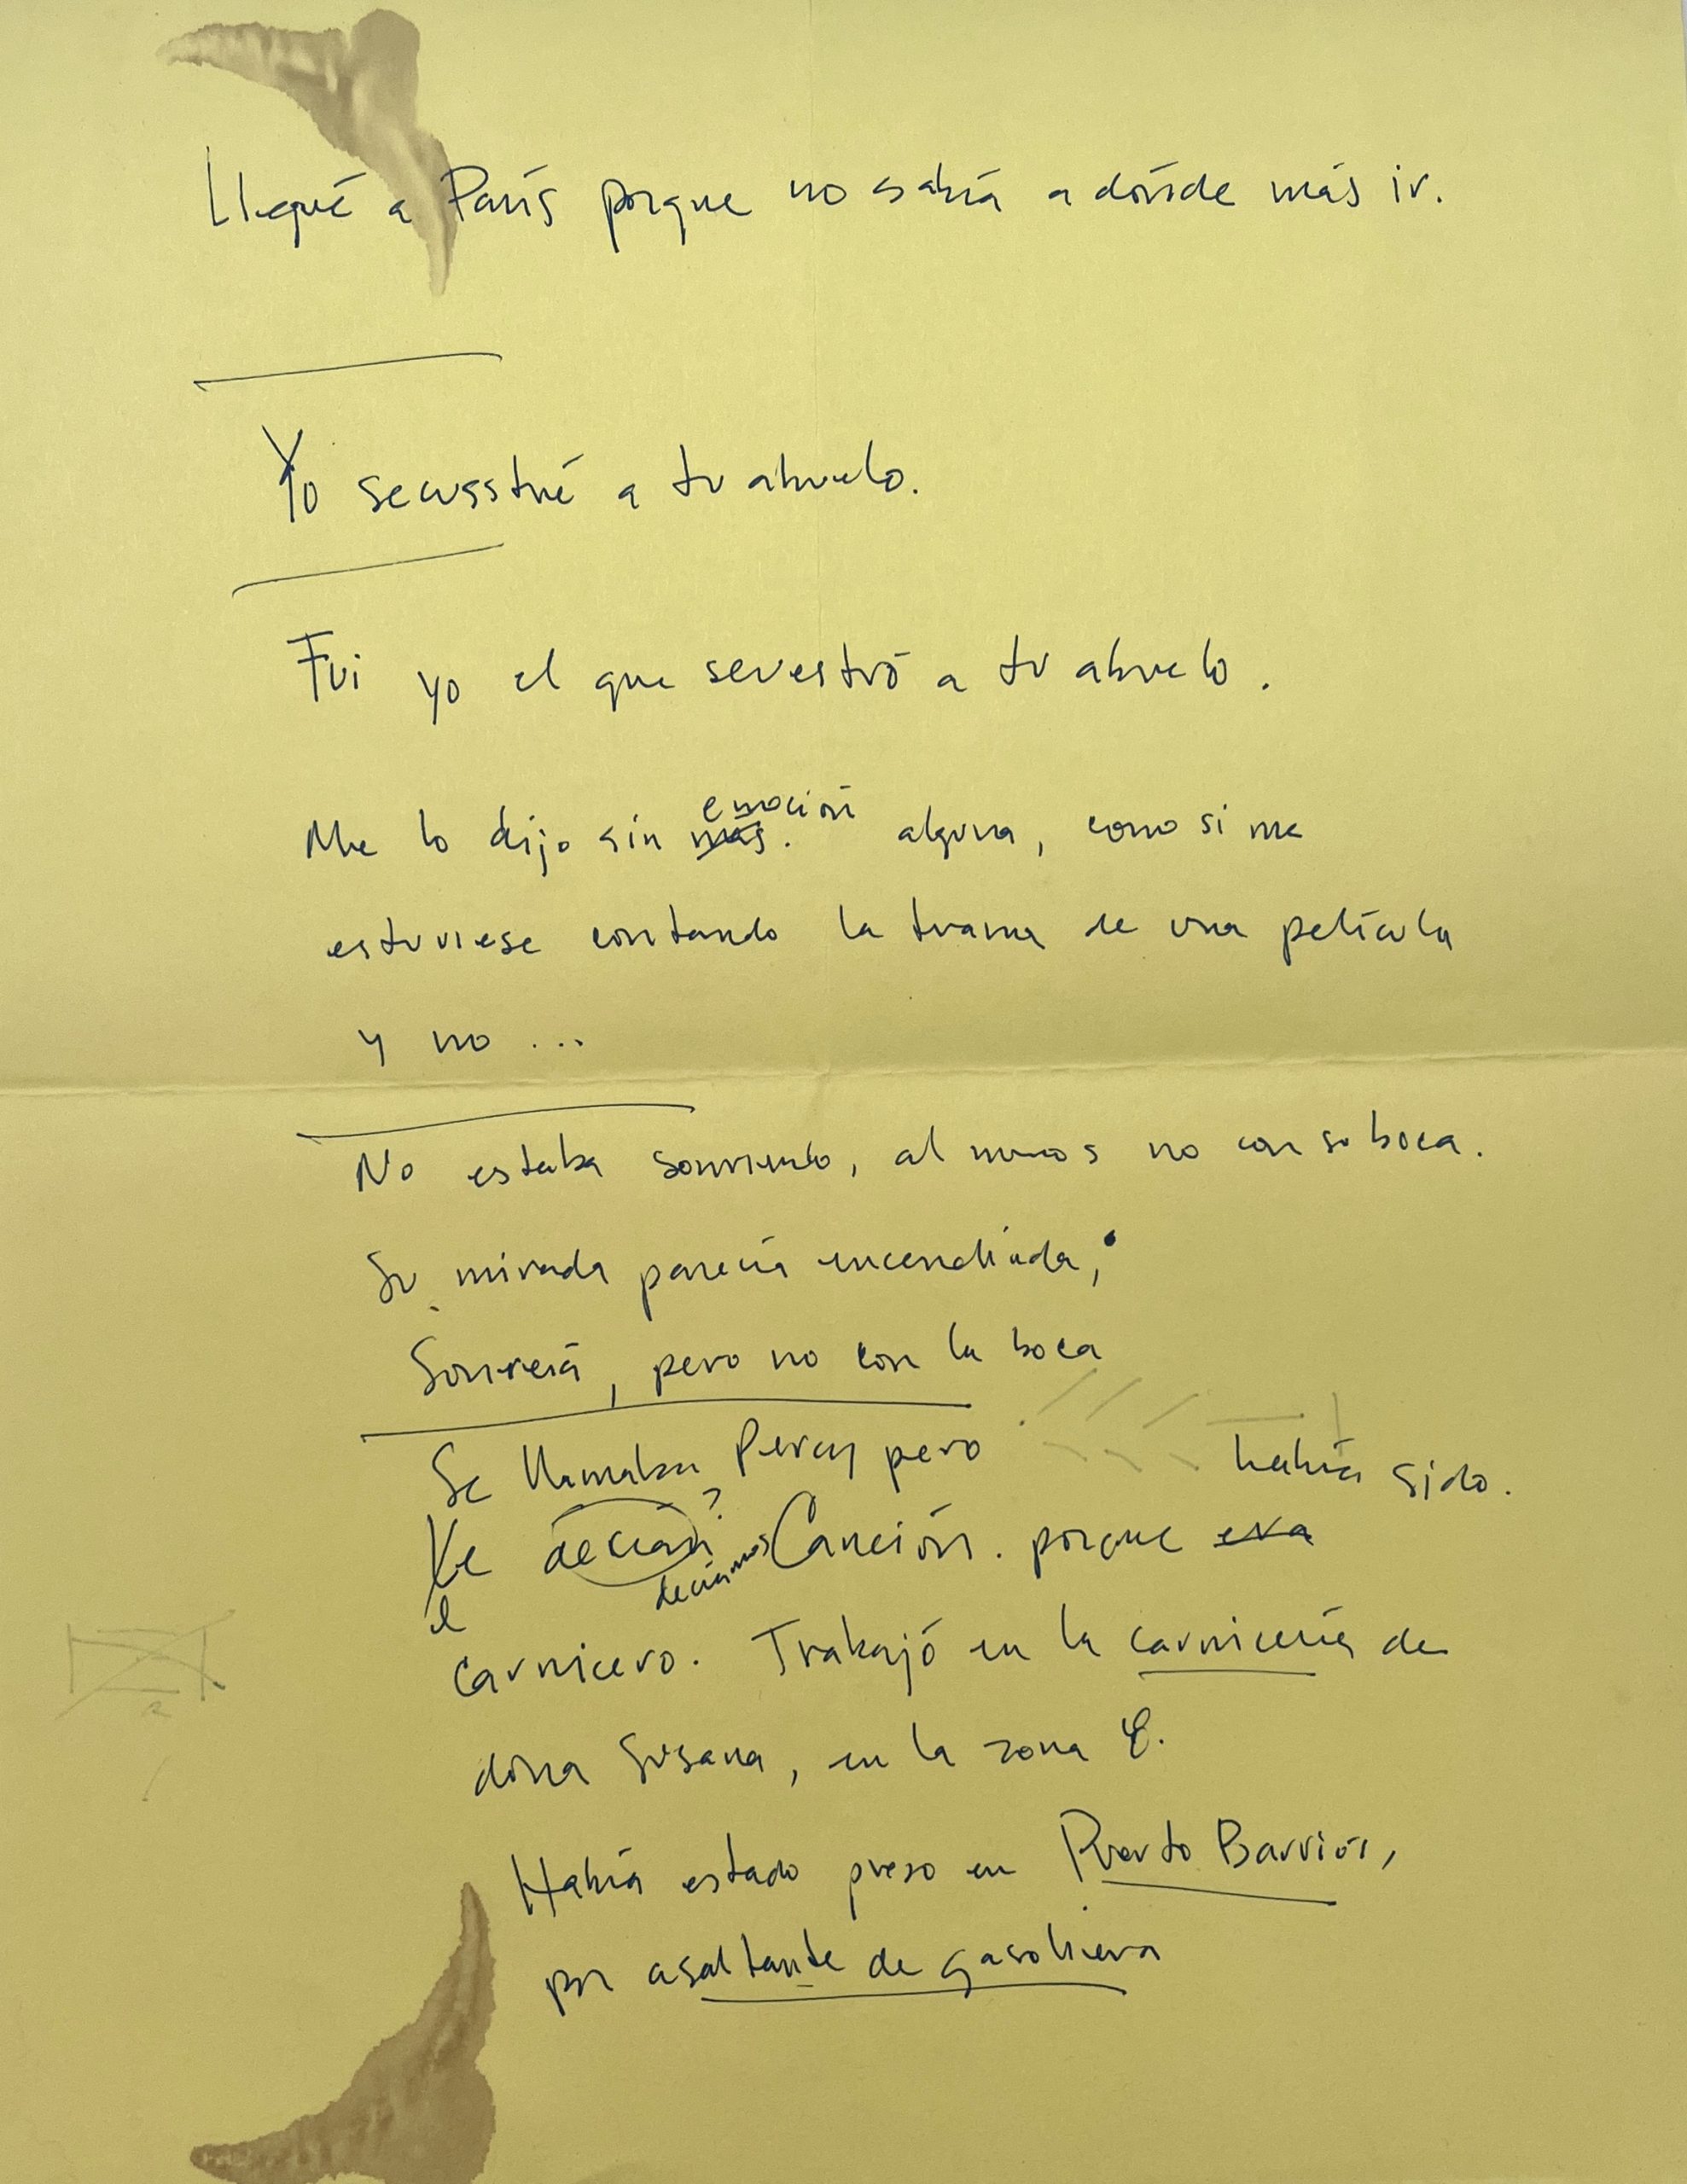 Llegué a París porque no sabía a dónde más ir.
Yo secuestré a tu abuelo.
Fui yo el que secuestró a tu abuelo.
emoción
Me lo dijo sin más. alguna, como si me
estuviese contando la trama de una película
y no ...
No estaba sonriendo, al menos no con su boca.
Su mirada parecía incendiada;
Sonreía, pero no con la boca
Se llamaba Percy pero había sido.
Le decían? Canción. porque era
decíamos
el
carnicero. Trabajó en la carnicería de
doña Susana, en la zona
Había estado preso en Puerto Barrios,
por asaltante de gasolinera